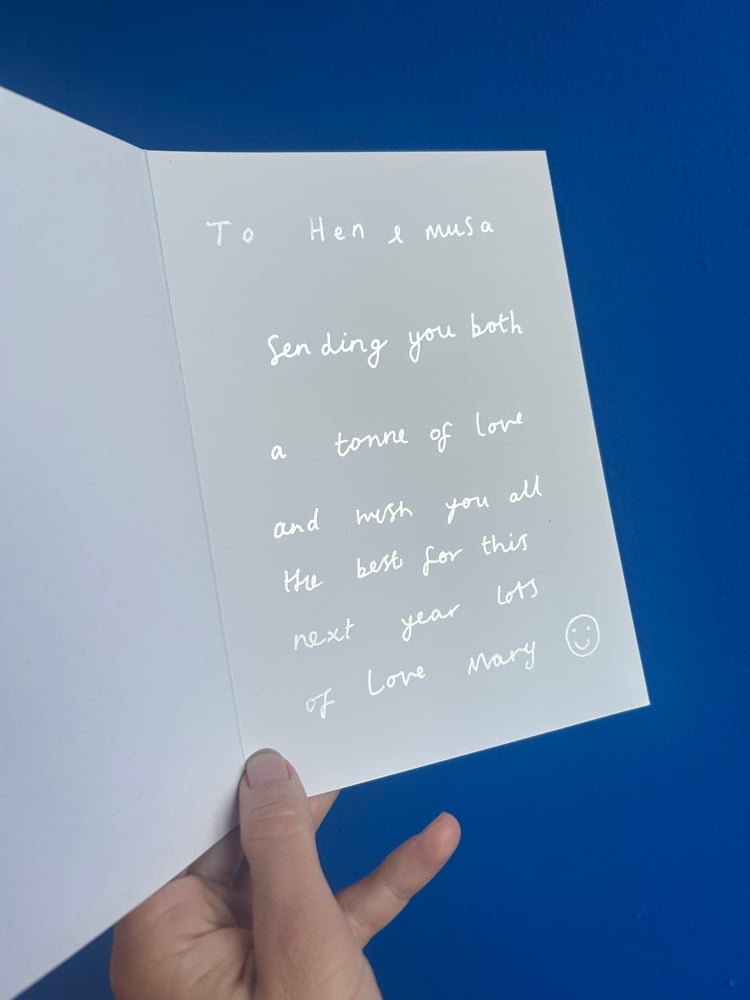 To Hen & musa
Sending you both
a tonne of love
and wish you all
the best for this
next year lots
of Love Mary